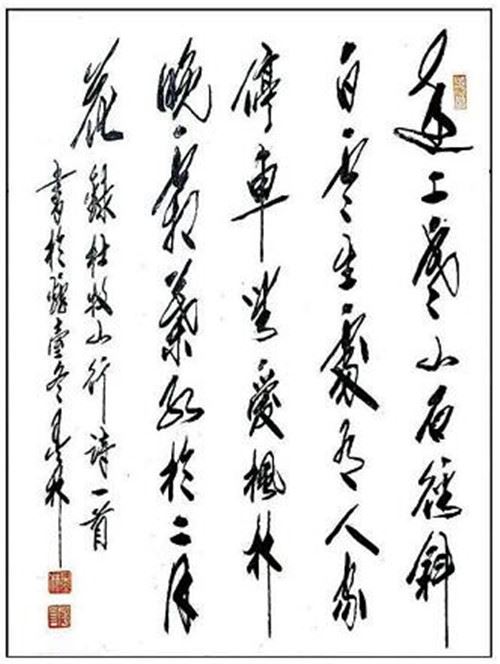 遠上寒山石徑斜
白雲生處有人家
停車坐愛楓林
晚霜葉紅於二月
花
錄杜牧山行詩一首
書於冬